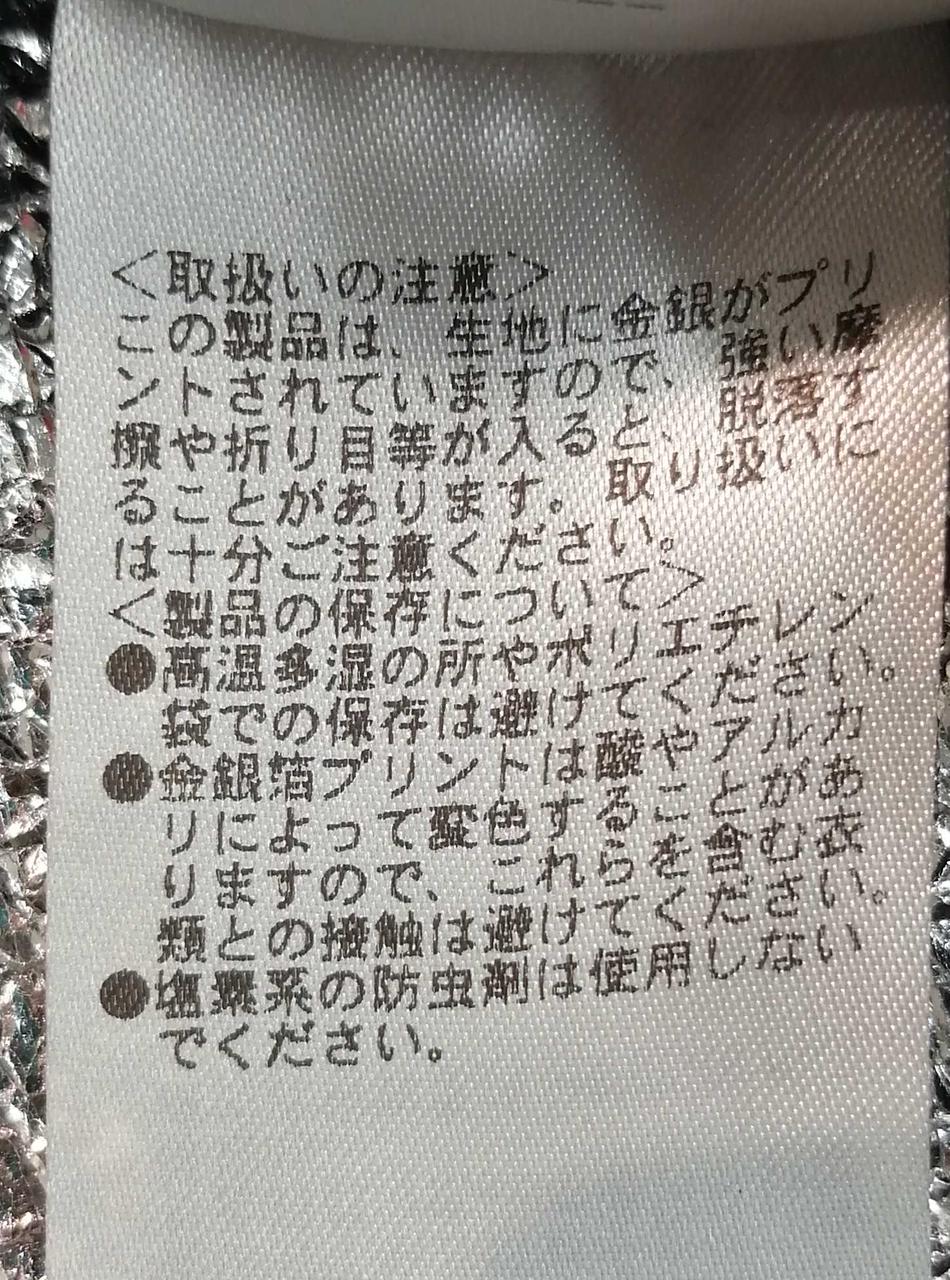 <取扱いの注意>
この製品は、生地に金銀がプリ
ントされていますので、強い摩
擦や折り目等が入ると、脱落す
ることがあります。取り扱いに
は十分ご注意ください。
<製品の保存について>
●高温多湿の所やポリエチレン
袋での保存は避けてください。
●金銀箔プリントは酸やアルカ
リによって変色することがあ
りますので、これらを含む衣
類との接触は避けてください。
●塩素系の防虫剤は使用しない
でください。